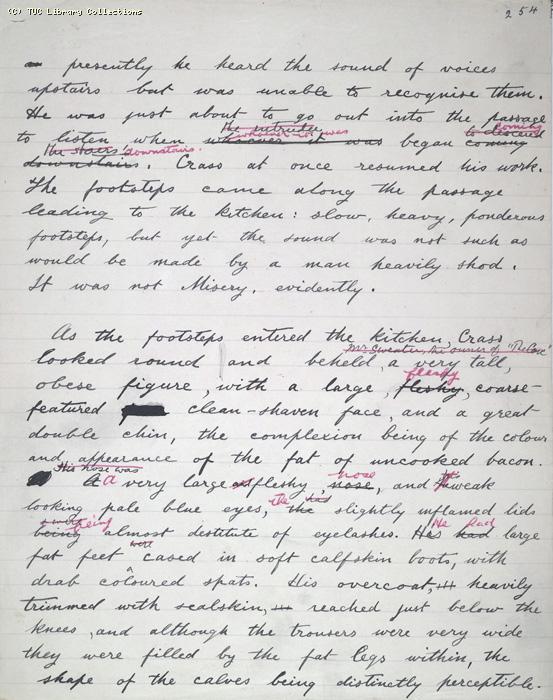 (C) TUC Library Collections
254
presently he heard the sound of voices
upstairs but was unable to recognise them.
He was just about to go out into the passage
The intruder to descend coming
whoever it was
to listen when whoever it was began coming
the stairs downstairs.
downstairs. Crass at once resumed his work.
The footsteps came along the passage
leading to the kitchen: slow, heavy, ponderous
footsteps, but yet the sound was not such as
would be made by a man heavily shod.
It was not Misery, evidently.
As the footsteps entered the kitchen, Crass
Mr Sweater, the owner of "The Cave"
looked round and beheld, a very tall,
fleshy
obese figure, with a large, fleshy, coarse-
featured clean-shaven face, and a great
double chin, the complexion being of the colour
and appearance of the fat of uncooked bacon.
His nose was nose
A a very large fleshy, nose, and weak
looking pale blue eyes, the the slightly inflamed lids
being He had
being almost destitute of eyelashes. His had large
were
fat feet cased in soft calfskin boots, with
drab coloured spats. His overcoat, heavily
trimmed with sealskin, reached just below the
knees, and although the trousers were very wide
they were filled by the fat legs within, the
shape of the calves being distinctly perceptible.